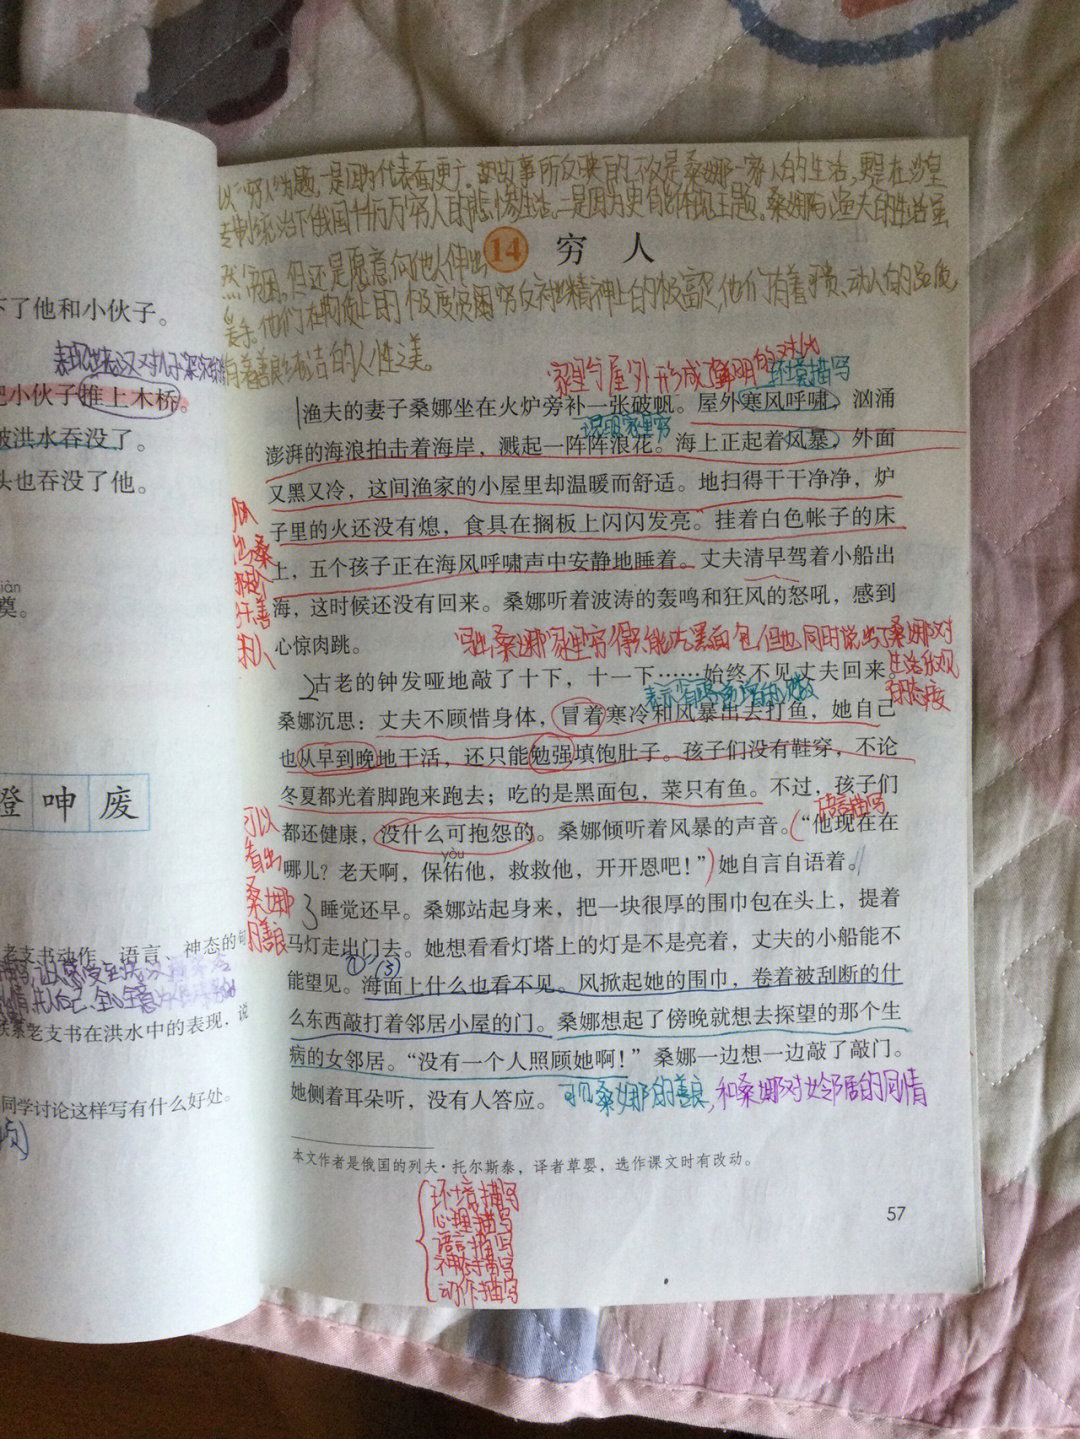 下了他和小伙子。
把小伙子推上木桥。
被洪水吞没了。
头也吞没了他。
奠。
澄 呻 废
老支书动作、语言、神态的句
联系老支书在洪水中的表现，说
同学讨论这样写有什么好处。
以"穷人"为题,一是因为代表面更广.故事所反映的不仅是桑娜一家人的生活,更是在沙皇
专制统治下俄国千千万万穷人的悲惨生活。二是因为更能体现主题。桑娜与渔夫的生活虽
然穷困,但还是愿意向他人伸出
14 穷人
他们在物质上的极度贫困 精神上的极富足,他们有着 动人的品质,
有着善良纯洁的人性之美。
家里与屋外形成了鲜明的对比
环境描写
渔夫的妻子桑娜坐在火炉旁补一张破帆。屋外寒风呼啸，汹涌
说明家里穷
澎湃的海浪拍击着海岸，溅起一阵阵浪花。海上正起着风暴，外面
又黑又冷，这间渔家的小屋里却温暖而舒适。地扫得干干净净，炉
子里的火还没有熄，食具在搁板上闪闪发亮。挂着白色帐子的床
上，五个孩子正在海风呼啸声中安静地睡着。丈夫清早驾着小船出
海，这时候还没有回来。桑娜听着波涛的轰鸣和狂风的怒吼，感到
心惊肉跳。
写出桑娜家里穷得只能吃黑面包,但也同时说出了桑娜对
生活乐观
的态度
古老的钟发哑地敲了十下，十一下……始终不见丈夫回来。
桑娜沉思：丈夫不顾惜身体，冒着寒冷和风暴出去打鱼，她自己
也从早到晚地干活，还只能勉强填饱肚子。孩子们没有鞋穿，不论
冬夏都光着脚跑来跑去；吃的是黑面包，菜只有鱼。不过，孩子们
语言描写
都还健康，没什么可抱怨的。桑娜倾听着风暴的声音。“他现在在
yòu
哪儿？老天啊，保佑他，救救他，开开恩吧！”她自言自语着。
可以
看出
桑娜
的善良
睡觉还早。桑娜站起身来，把一块很厚的围巾包在头上，提着
马灯走出门去。她想看看灯塔上的灯是不是亮着，丈夫的小船能不
① ③
能望见。海面上什么也看不见。风掀起她的围巾，卷着被刮断的什
么东西敲打着邻居小屋的门。桑娜想起了傍晚就想去探望的那个生
病的女邻居。“没有一个人照顾她啊！”桑娜一边想一边敲了敲门。
她侧着耳朵听，没有人答应。
可见桑娜的善良,和桑娜对女邻居的同情
本文作者是俄国的列夫·托尔斯泰，译者草婴，选作课文时有改动。
环境描写
心理描写
语言描写
神态描写
动作描写
57